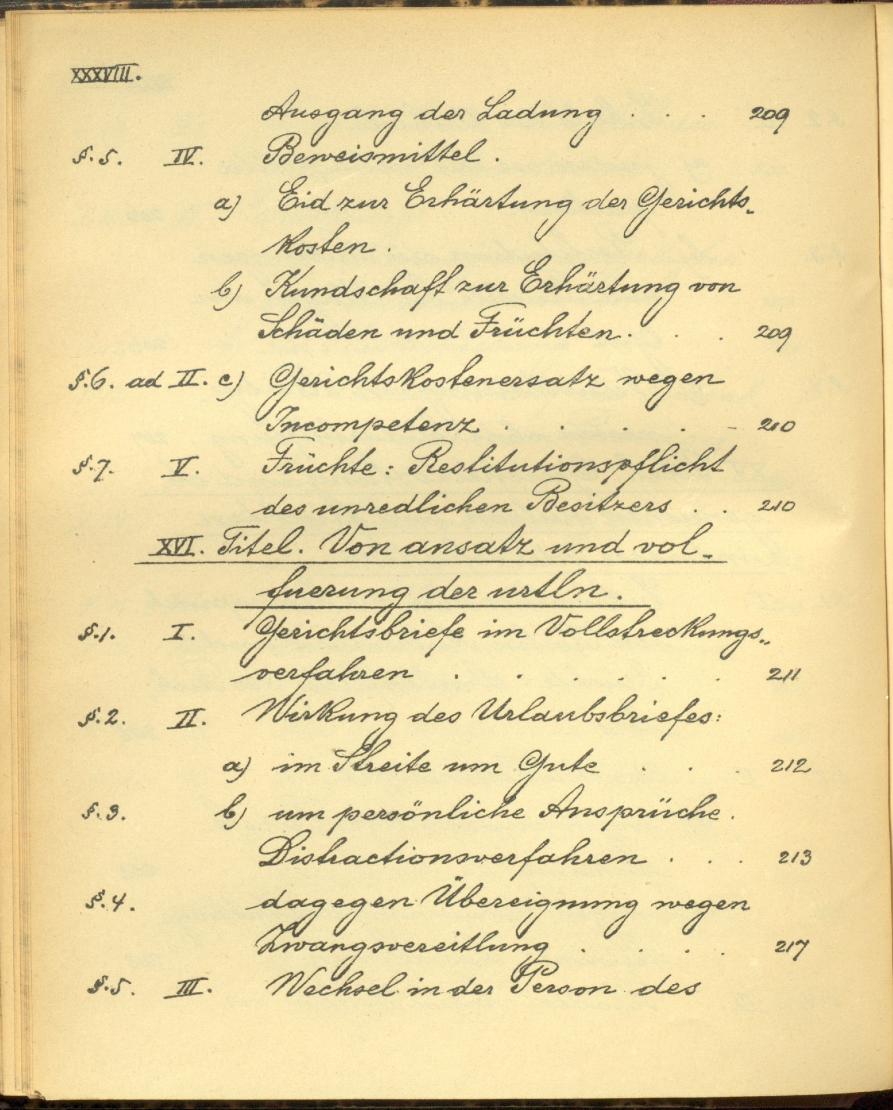 XXXVIII.
Ausgang der Ladung . . . 209
§. 5. IV. Beweismittel.
a) Eid zur Erhärtung der Gerichts-
kosten.
b) Kundschaft zur Erhärtung von
Schäden und Früchten. . . 209
§. 6. ad II. c) Gerichtskostenersatz wegen
Incompetenz . . . . . 210
§. 7. V. Früchte: Restitutionspflicht
des unredlichen Besitzers . . 210
XVI. Titel. Von ansatz und vol-
fuerung der urtln.
§. 1. I. Gerichtsbriefe im Vollstreckungs-
verfahren . . . . . 211
§. 2. II. Wirkung des Urlaubsbriefes:
a) im Streite um Gute . . . 212
§. 3. b) um persönliche Ansprüche.
Distractionsverfahren . . . 213
§. 4. dagegen Übereignung wegen
Zwangsvereitlung . . . . 217
§. 5. III. Wechsel in der Person des